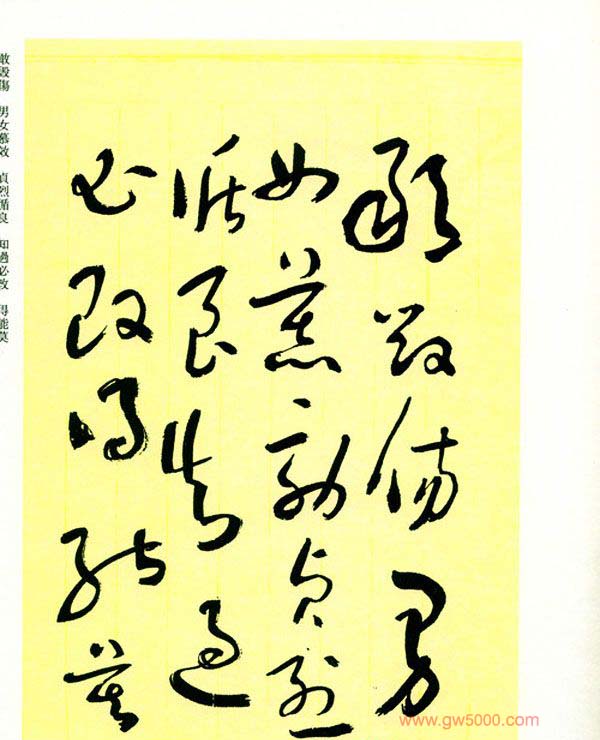 敢毀傷男
女慕効貞烈
循良知過
必改得能莫
敢毀傷 男女慕效 貞烈循良 知過必改 得能莫
www.gw5000.com